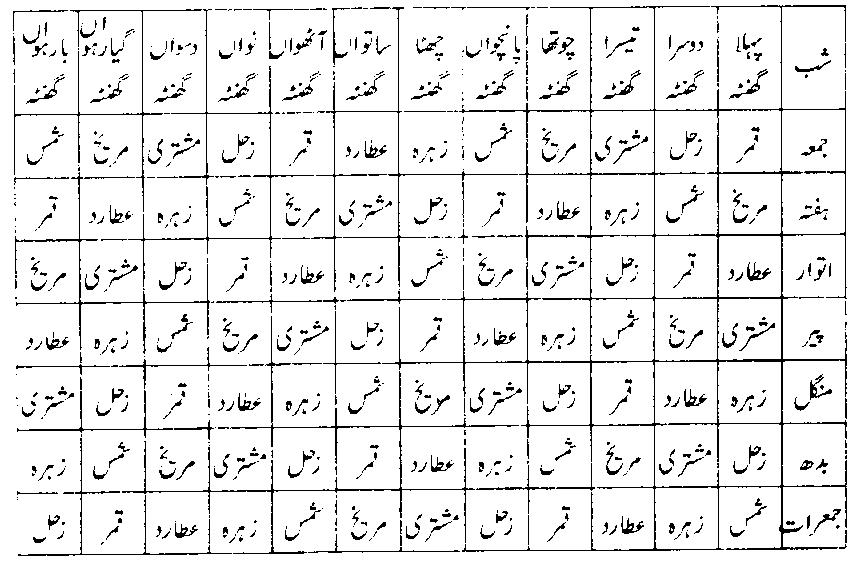 شب پہلا گھنٹہ دوسرا گھنٹہ تیسرا گھنٹہ چوتھا گھنٹہ پانچواں گھنٹہ چھٹا گھنٹہ ساتواں گھنٹہ آٹھواں گھنٹہ نواں گھنٹہ دسواں گھنٹہ گیارہواں گھنٹہ بارہواں گھنٹہ
جمعہ قمر زحل مشتری مریخ شمس زہرہ عطارد قمر زحل مشتری مریخ شمس
ہفتہ مریخ شمس زہرہ عطارد قمر زحل مشتری مریخ شمس زہرہ عطارد قمر
اتوار عطارد قمر زحل مشتری مریخ شمس زہرہ عطارد قمر زحل مشتری مریخ
پیر مشتری مریخ شمس زہرہ عطارد قمر زحل مشتری مریخ شمس زہرہ عطارد
منگل زہرہ عطارد قمر زحل مشتری مریخ شمس زہرہ عطارد قمر زحل مشتری
بدھ زحل مشتری مریخ شمس زہرہ عطارد قمر زحل مشتری مریخ شمس زہرہ
جمعرات شمس زہرہ عطارد قمر زحل مشتری مریخ شمس زہرہ عطارد قمر زحل